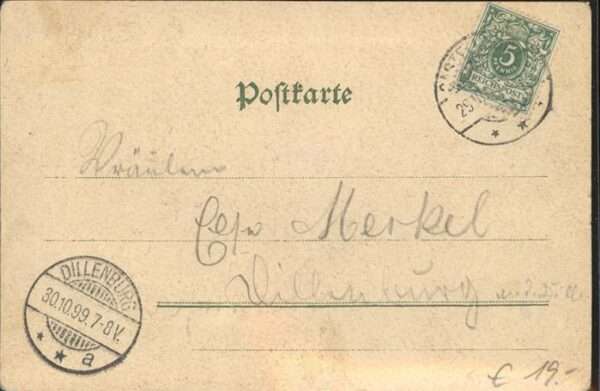 Postkarte
5
REICHSPOST
Fräulein
Merkel
Dillenburg
DILLENBURG
30.10.99. 7-8V.
* * a
€ 19.-